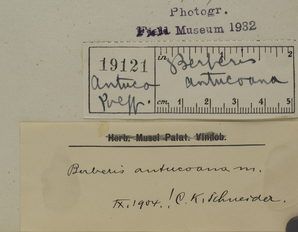 Photogr.
Field Museum 1932
19121
Antuco
Poepp.
in
Berberis
antucoana
cm. 1 2 3 4 5
Herb. Musei Palat. Vindob.
Berberis antucoana m.
IX. 1904. ! C. K. Schneider.